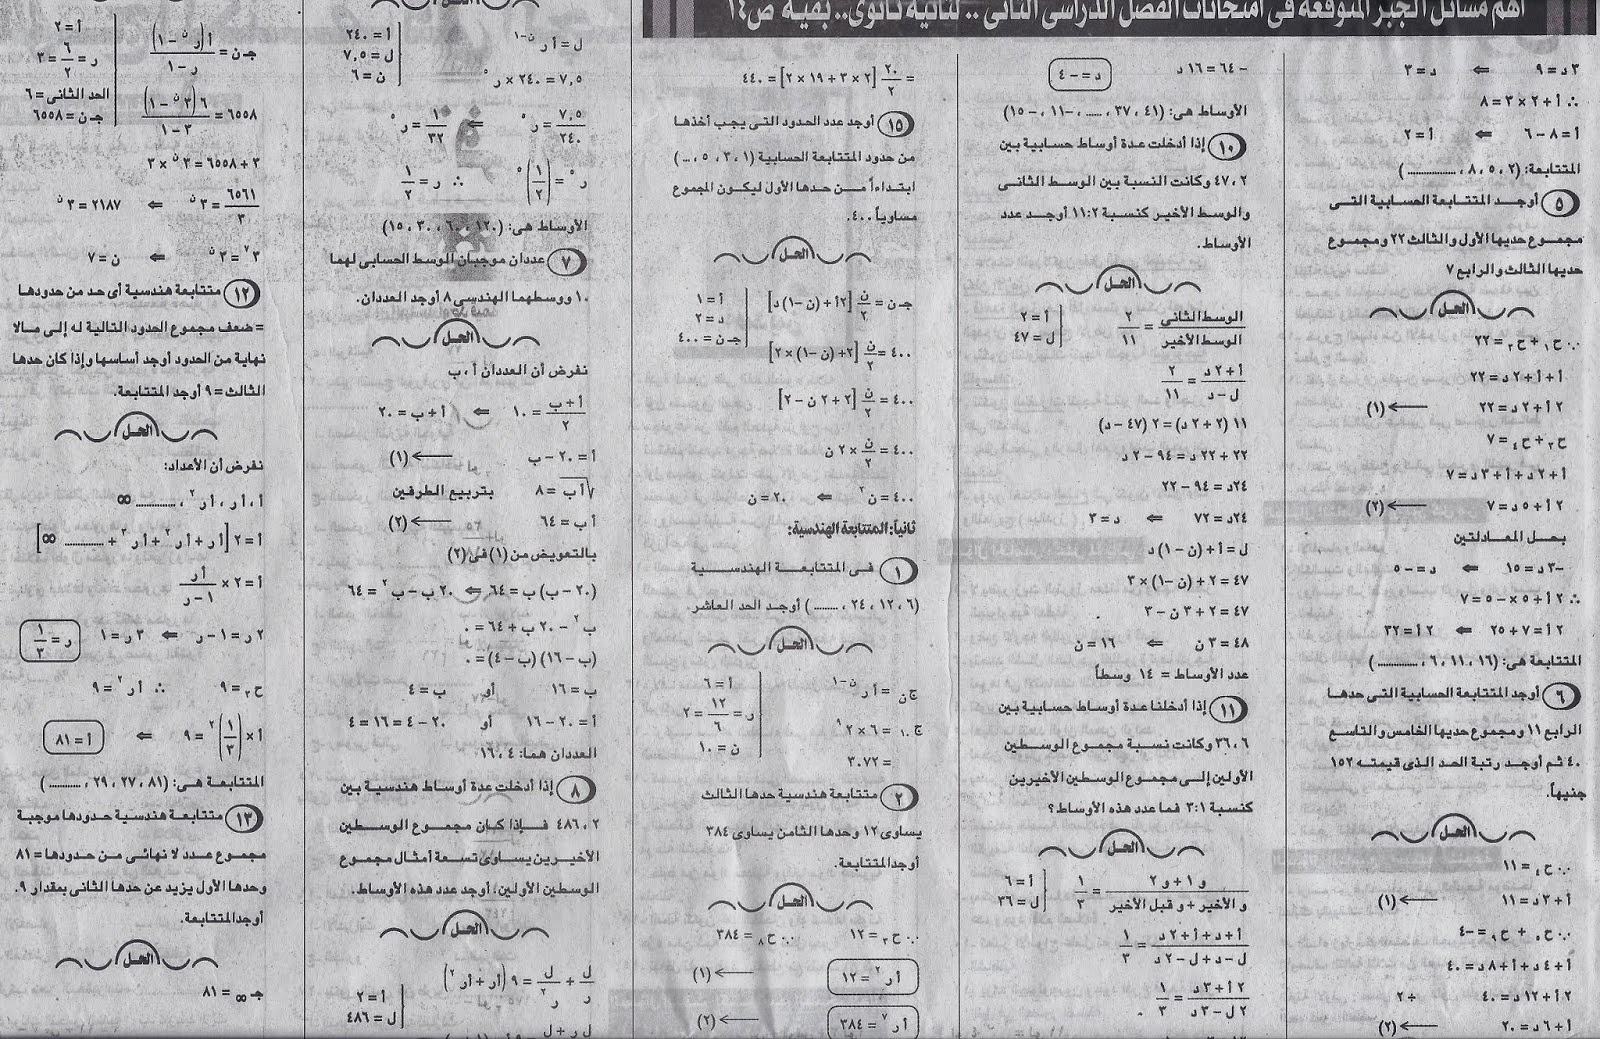 أهم مسائل الجبر المتوقعة فى امتحانات الفصل الدراسى الثانى .. لثانية ثانوى.. بقية ص١٤
٣ د = ٩ ⇐ د = ٣
∴ أ + ٢ × ٣ = ٨
أ = ٨ - ٦ ⇐ أ = ٢
المتتابعة: (٢ ، ٥ ، ٨ ، ............)
٥ أوجد المتتابعة الحسابية التى
مجموع حديها الأول والثالث ٢٢ ومجموع
حديها الثالث والرابع ٧
الحل
∵ ح١ + ح٣ = ٢٢
أ + أ + ٢ د = ٢٢
٢ أ + ٢ د = ٢٢ ← (١)
ح٣ + ح٤ = ٧
أ + ٢ د + أ + ٣ د = ٧
٢ أ + ٥ د = ٧ ← (٢)
بحل المعادلتين
-٣ د = ١٥ ⇐ د = - ٥
∴ ٢ أ + ٥ × - ٥ = ٧
٢ أ = ٧ + ٢٥ ⇐ ٢ أ = ٣٢
المتتابعة هى: (١٦ ، ١١ ، ٦ ، ............)
٦ أوجد المتتابعة الحسابية التى حدها
الرابع ١١ ومجموع حديها الخامس والتاسع
٤٠ ثم أوجد رتبة الحد الذى قيمته ١٥٢
جنيهاً.
الحل
∵ ح٤ = ١١
أ + ٣ د = ١١ ← (١)
∵ ح٥ + ح٩ = ٤٠
أ + ٤ د + أ + ٨ د = ٤٠
٢ أ + ١٢ د = ٤٠ ÷ ٢
أ + ٦ د = ٢٠ ← (٢)
- ٦٤ = ١٦ د د = - ٤
الأوساط هى: (٤١ ، ٣٧ ، ...... ، -١١ ، - ١٥)
١٠ إذا أدخلت عدة أوساط حسابية بين
٢ ، ٤٧ وكانت النسبة بين الوسط الثانى
والوسط الأخير كنسبة ١١:٢ أوجد عدد
الأوساط.
الحل
الوسط الثانى / الوسط الأخير = ٢ / ١١ أ = ٢ ل = ٤٧
أ + ٢ د / ل - د = ٢ / ١١
١١ (٢ + ٢ د) = ٢ (٤٧ - د)
٢٢ + ٢٢ د = ٩٤ - ٢ د
٢٤ د = ٩٤ - ٢٢
٢٤ د = ٧٢ ⇐ د = ٣
ل = أ + (ن - ١) د
٤٧ = ٢ + (ن - ١) × ٣
٤٧ = ٢ + ٣ ن - ٣
٤٨ = ٣ ن ⇐ ١٦ = ن
عدد الأوساط = ١٤ وسطاً
١١ إذا أدخلنا عدة أوساط حسابية بين
٦ ، ٣٦ وكانت نسبة مجموع الوسطين
الأولين إلى مجموع الوسطين الأخيرين
كنسبة ٣:١ فما عدد هذه الأوساط؟
الحل
و ١ + و ٢ / و الأخير + و قبل الأخير = ١ / ٣ أ = ٦ ل = ٣٦
أ + د + أ + ٢ د / ل - د + ل - ٢ د = ١ / ٣
٢ أ + ٣ د / ٢ ل - ٣ د = ١ / ٣
= ٢٠ / ٢ [٢ × ٣ + ١٩ × ٢] = ٤٤٠
١٥ أوجد عدد الحدود التى يجب أخذها
من حدود المتتابعة الحسابية (١ ، ٣ ، ٥ ، ...)
ابتداءاً من حدها الأول ليكون المجموع
مساوياً ٤٠٠.
الحل
جـ ن = ن / ٢ [٢أ + (ن - ١) د] أ = ١ د = ٢ جـ ن = ٤٠٠
٤٠٠ = ن / ٢ [٢ + (ن - ١) × ٢]
٤٠٠ = ن / ٢ [٢ + ٢ ن - ٢]
٤٠٠ = ن / ٢ × ٢ ن
٤٠٠ = ن٢ ⇐ ٢٠ = ن
ثانياً: المتتابعة الهندسية:
١ فى المتتابعة الهندسية
(٦ ، ١٢ ، ٢٤ ، ........) أوجد الحد العاشر.
الحل
ح ن = أ ر ن-١ أ = ٦
ح١٠ = ٦ × ٢ ٩ ر = ١٢ / ٦ = ٢
= ٣٠٧٢ ن = ١٠
٢ متتابعة هندسية حدها الثالث
يساوى ١٢ وحدها الثامن يساوى ٣٨٤
أوجد المتتابعة.
الحل
∵ ح٣ = ١٢ ∵ ح٨ = ٣٨٤
أ ر٢ = ١٢ ← (١)
أ ر٧ = ٣٨٤ ← (٢)
الحل
ل = أ ر ن-١ أ = ٢٤٠ ل = ٧,٥ ن = ٦
٧,٥ = ٢٤٠ × ر٥
٧,٥ / ٢٤٠ = ر٥ ⇐ ١ / ٣٢ = ر٥
ر٥ = (١ / ٢)٥ ∴ ر = ١ / ٢
الأوساط هى: (١٢٠ ، ٦٠ ، ٣٠ ، ١٥)
٧ عددان موجبان الوسط الحسابى لهما
١٠ ووسطهما الهندسى ٨ أوجد العددان.
الحل
نفرض أن العددان أ ، ب
أ + ب / ٢ = ١٠ ⇐ أ + ب = ٢٠
أ = ٢٠ - ب ← (١)
√أ ب = ٨ بتربيع الطرفين
أ ب = ٦٤ ← (٢)
بالتعويض من (١) فى (٢)
(٢٠ - ب) ب = ٦٤ ⇐ ٢٠ ب - ب٢ = ٦٤
ب٢ - ٢٠ ب + ٦٤ = ٠
(ب - ١٦) (ب - ٤) = ٠
ب = ١٦ أو ب = ٤
أ = ٢٠ - ١٦ = ٤ أو ٢٠ - ٤ = ١٦
العددان هما: ٤ ، ١٦
٨ إذا أدخلت عدة أوساط هندسية بين
٢ ، ٤٨٦ فإذا كان مجموع الوسطين
الأخيرين يساوى تسعة أمثال مجموع
الوسطين الأولين، أوجد عدد هذه الأوساط.
الحل
ل / ر + ل / ر٢ = ٩ (أر + أر٢) أ = ٢ ل = ٤٨٦
ل ر + ل
جـ ن = أ(ر ن - ١) / ر - ١ أ = ٢ ر = ٦ / ٢ = ٣
٦٥٥٨ = ٦(٣ ن - ١) / ٣ - ١ الحد الثانى = ٦ جـ ن = ٦٥٥٨
٣ + ٦٥٥٨ = ٣ ن × ٣
٦٥٦١ / ٣ = ٣ ن ⇐ ٢١٨٧ = ٣ ن
٣ ٧ = ٣ ن ⇐ ن = ٧
١٢ متتابعة هندسية أى حد من حدودها
= ضعف مجموع الحدود التالية له إلى مالا
نهاية من الحدود أوجد أساسها وإذا كان حدها
الثالث = ٩ أوجد المتتابعة.
الحل
نفرض أن الأعداد:
أ ، أر ، أر٢ ، ............ ∞
أ = ٢ [أر + أر٢ + أر٣ + ............ ∞]
أ = ٢ × أر / ١ - ر
٢ ر = ١ - ر ⇐ ٣ ر = ١ ر = ١ / ٣
ح٣ = ٩ ∴ أر٢ = ٩
أ × (١ / ٣)٢ = ٩ ⇐ أ = ٨١
المتتابعة هى: (٨١ ، ٢٧ ، ٢٩ ، ............)
١٣ متتابعة هندسية حدودها موجبة
مجموع عدد لا نهائى من حدودها = ٨١
وحدها الأول يزيد عن حدها الثانى بمقدار ٩.
أوجد المتتابعة.
الحل
جـ ∞ = ٨١